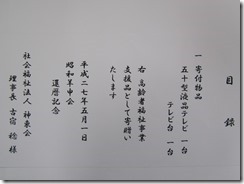 目録
一 寄付物品
五十型液晶テレビ 一台
テレビ台 一台
右 高齢者福祉事業
支援品として寄贈い
たします
平成二七年五月一日
昭和羊申会
還暦記念
社会福祉法人 神東会
理事長 古宿 稔 様